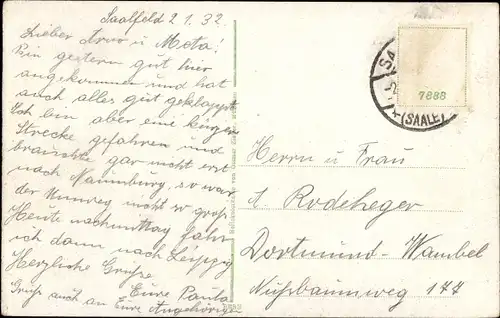 Saalfeld 2 1. 32.
Lieber Arno u Meta!
Bin gestern gut hier
angekommen und hat
auch alles gut geklappt
Ich bin aber eine kürzere
Strecke gefahren und
brauchte gar nicht erst
nach Naumburg, so war
der Umweg nicht so groß
Heute nachmittag fahr
ich dann nach Leipzig
Herzliche Grüße
Eure Paula
Gruß auch an Eure Angehörigen
7888
(SAALE)
Herrn u Frau
A. Rodeheger
Dortmund-Wambel
Nußbaumweg 177